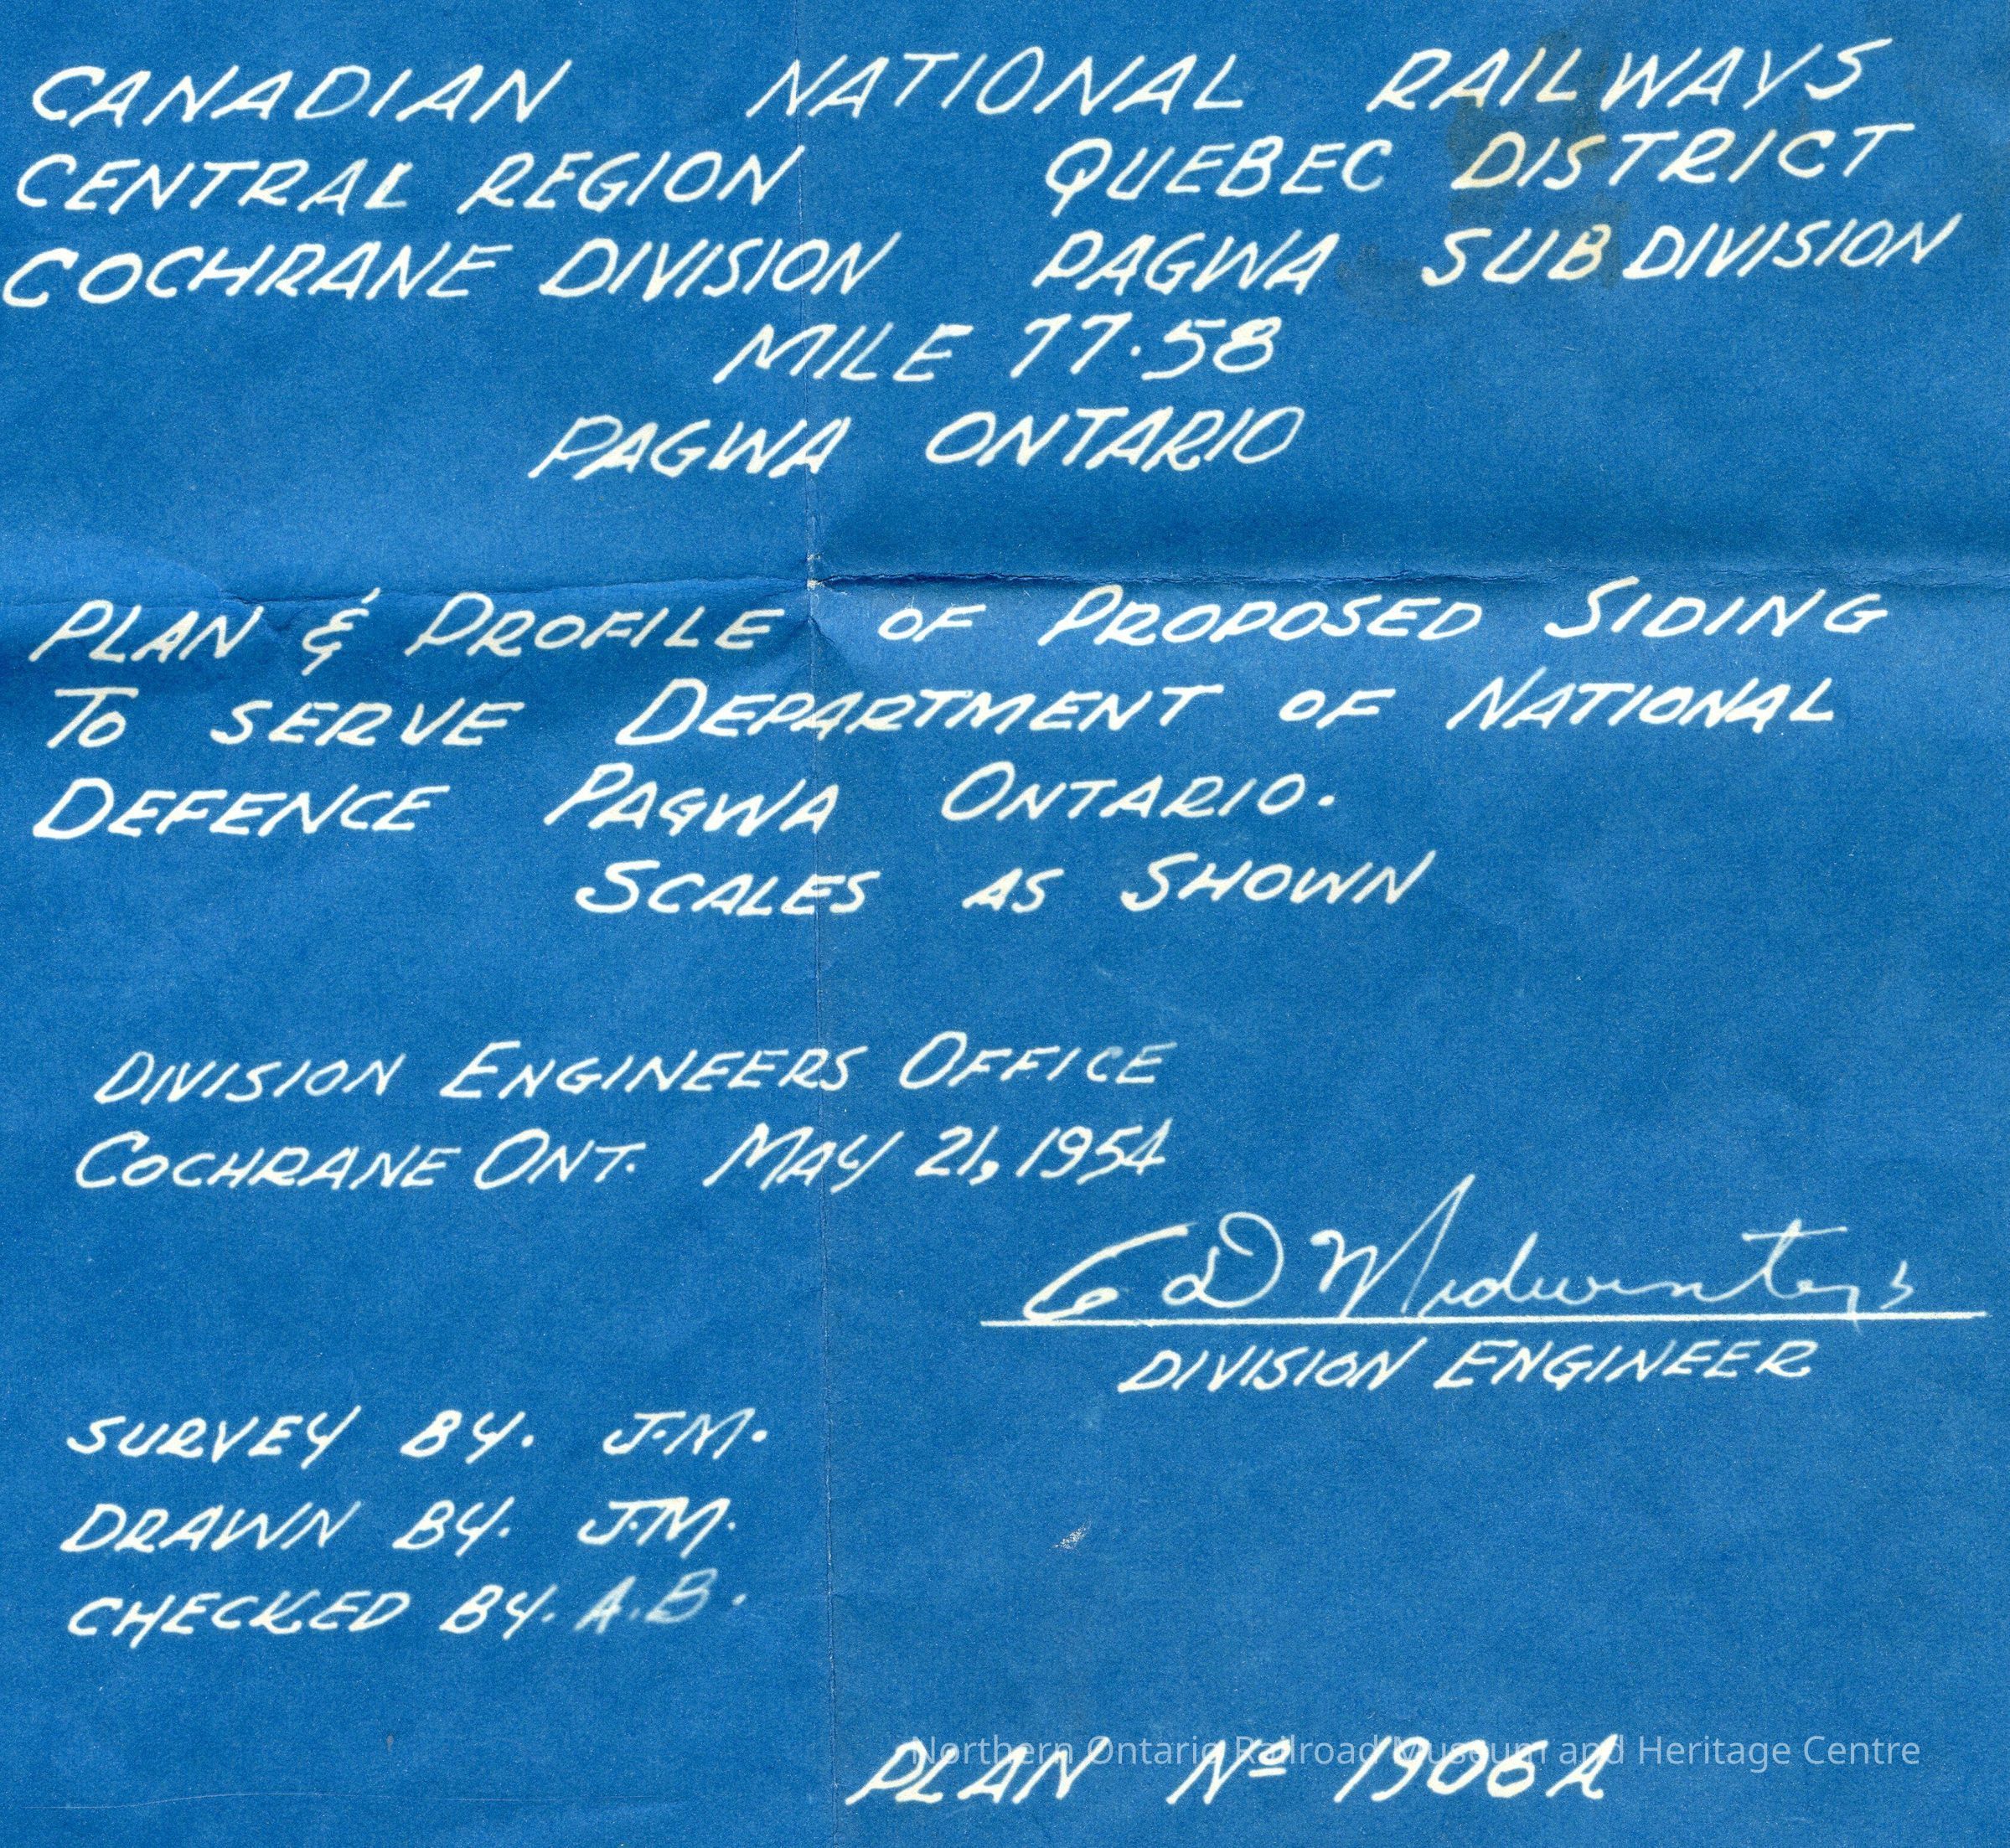 CANADIAN NATIONAL RAILWAYS
CENTRAL REGION QUEBEC DISTRICT
COCHRANE DIVISION PAGWA SUBDIVISION
MILE 77.58
PAGWA ONTARIO
PLAN & PROFILE OF PROPOSED SIDING
TO SERVE DEPARTMENT OF NATIONAL
DEFENCE PAGWA ONTARIO.
SCALES AS SHOWN
DIVISION ENGINEERS OFFICE
COCHRANE ONT. MAY 21, 1954
Midwinter
DIVISION ENGINEER
SURVEY BY. J.M.
DRAWN BY. J.M.
CHECKED BY. A.B.
Northern Ontario Railroad Museum and Heritage Centre
PLAN Nº 1906A